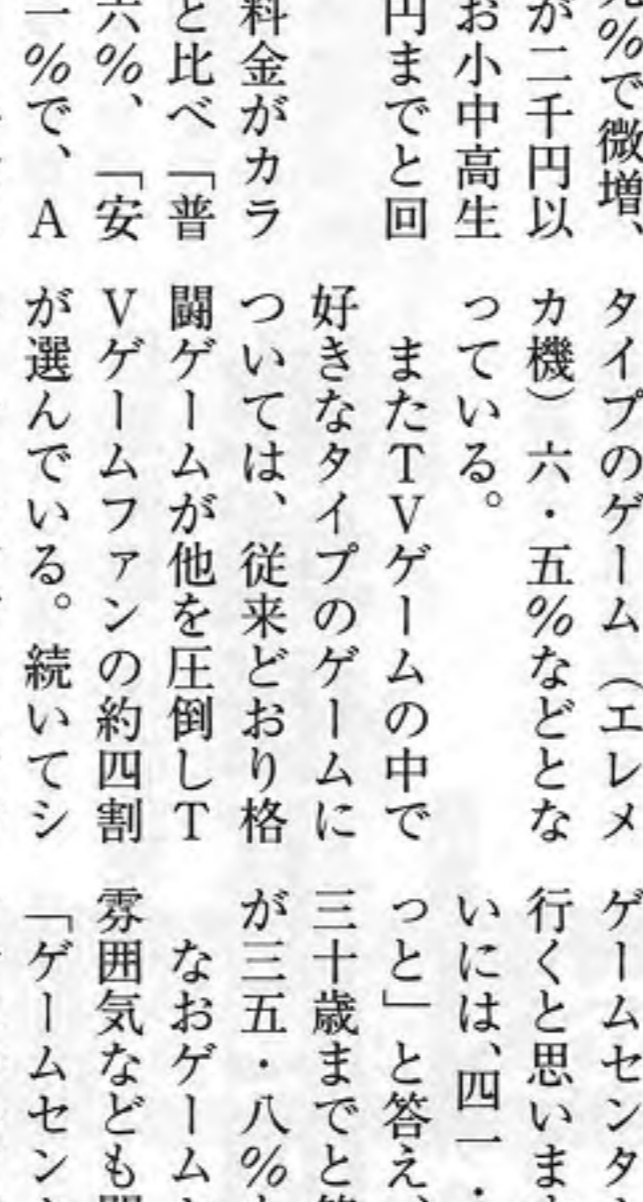 %で微増、
が二千円以
お小中高生
円までと回
料金がカラ
と比べ「普
六%、「安
一%で、A
タイプのゲーム(エレメ
カ機)六・五%などとな
っている。
またTVゲームの中で
好きなタイプのゲームに
ついては、従来どおり格
闘ゲームが他を圧倒しT
Vゲームファンの約四割
が選んでいる。続いてシ
ゲームセンタ
行くと思いま
いには、四一・
っと」と答え、
三十歳までと
が三五・八%
なおゲーム
雰囲気なども
「ゲームセン